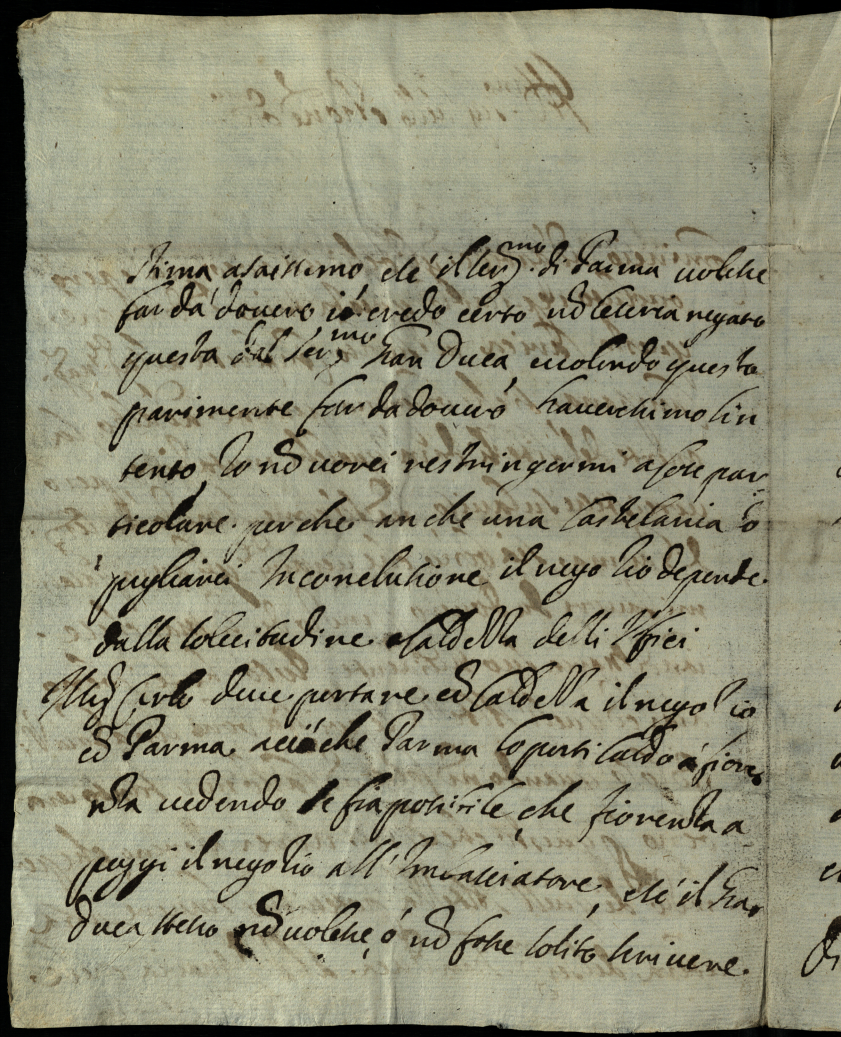 stima asaissimo, e se il Ser.mo di Parma volesse
far da dovero io credo certo nō le seria negato
questa dal Ser.mo Gran Duca, e volendo questo
parimente far da dovero haveressimo l'in
tento, Io nō vorei restringermi a cose par-
ticolare. perche anche una Castelania
pigliarei. In conclusione il negotio depende
dalla solecitudine e caldezza delli Uffici
Il Sig Carlo deve portare cō caldezza il negotio
cō Parma. acciò che Parma lo porti caldo à fioren
za vedendo se sia possibile, che fiorenza a
poggi il negotio all'Imbasciatore, e se il Gran
Duca stesso nō volesse, ò nō fosse solito scrivere.